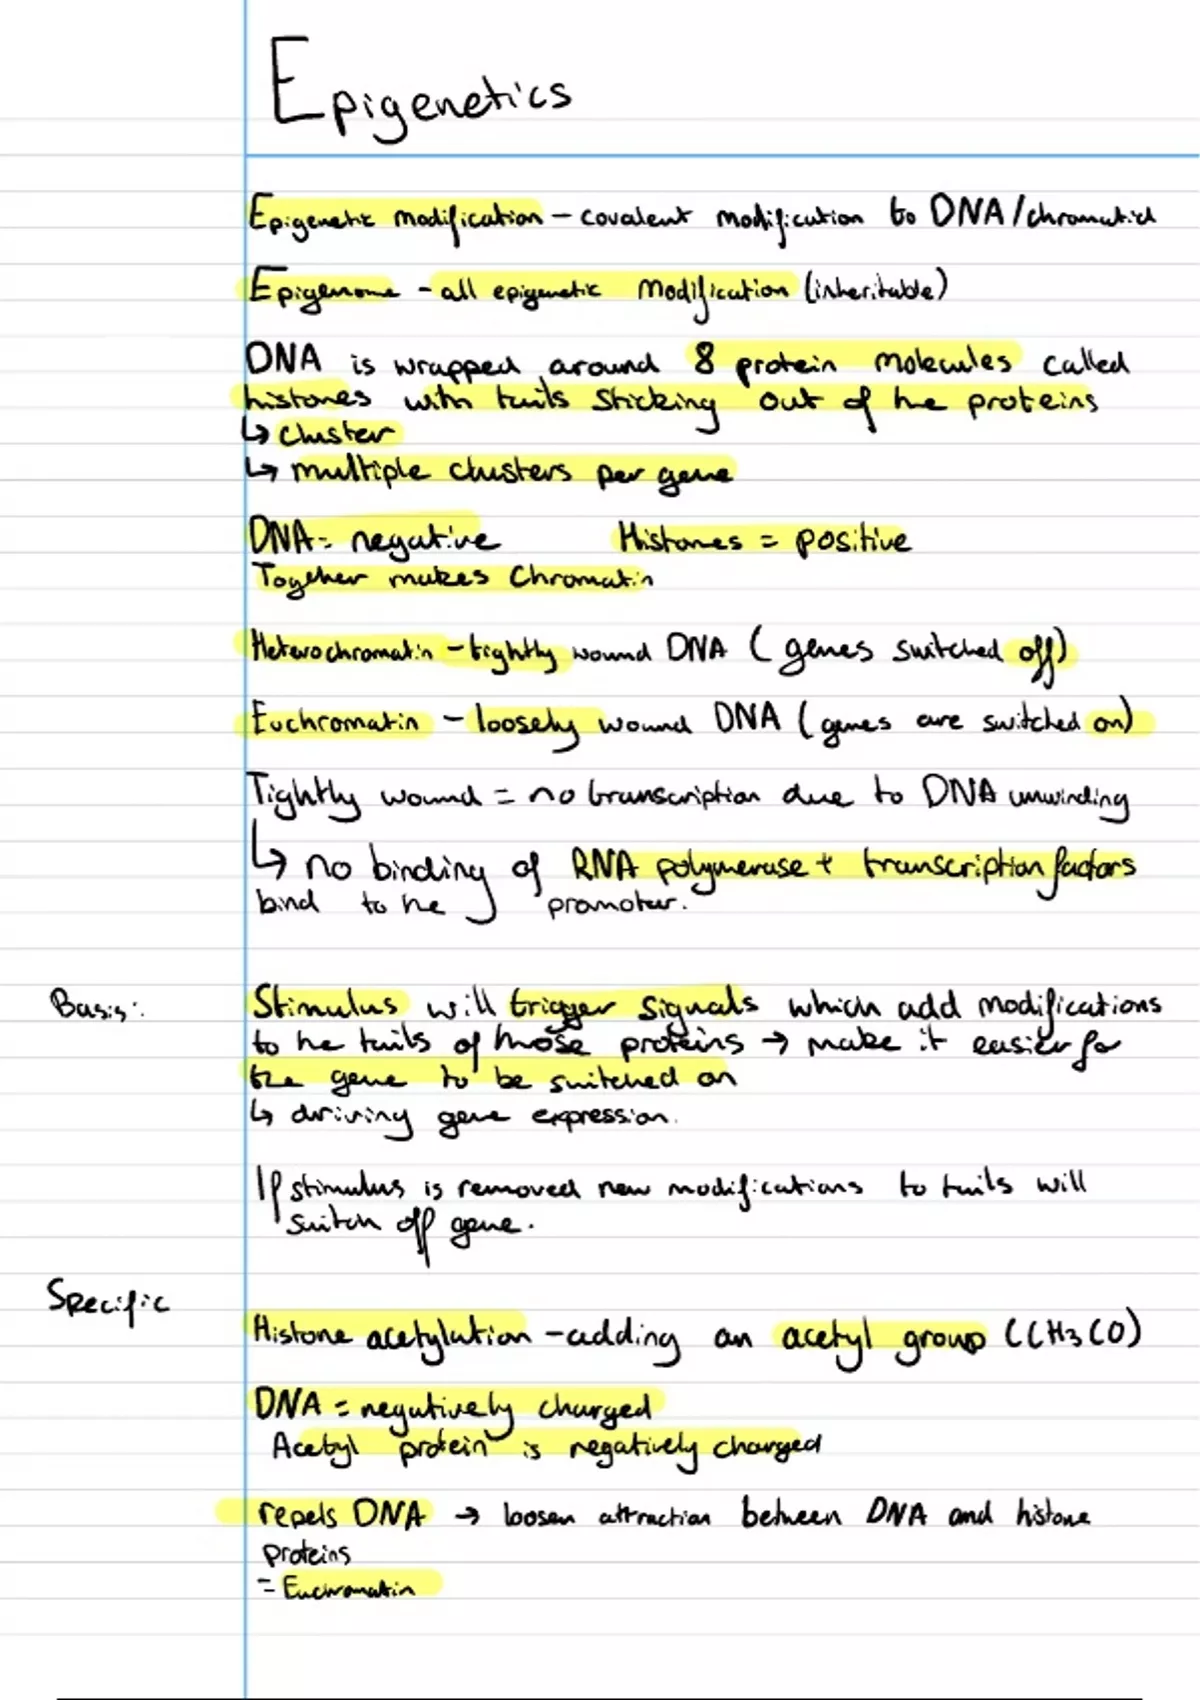 Epigenetics
Epigenetic modification - covalent modification to DNA/chromatid
Epigenome - all epigenetic modification (inheritable)
DNA is wrapped around 8 protein molecules called
histones with tails sticking out of the proteins
↳ cluster
↳ multiple clusters per gene
DNA = negative Histones = positive
Together makes Chromatin
Heterochromatin - tightly wound DNA (genes switched off)
Euchromatin - loosely wound DNA (genes are switched on)
Tightly wound = no transcription due to DNA unwinding
↳ no binding of RNA polymerase + transcription factors
bind to the promoter.
Basis: Stimulus will trigger signals which add modifications
to the tails of those proteins → make it easier for
the gene to be switched on
↳ driving gene expression.
If stimulus is removed new modifications to tails will
switch off gene.
Specific
Histone acetylation - adding an acetyl group (CH3CO)
DNA = negatively charged
Acetyl protein is negatively charged
repels DNA → loosen attraction between DNA and histone
proteins
= Euchromatin